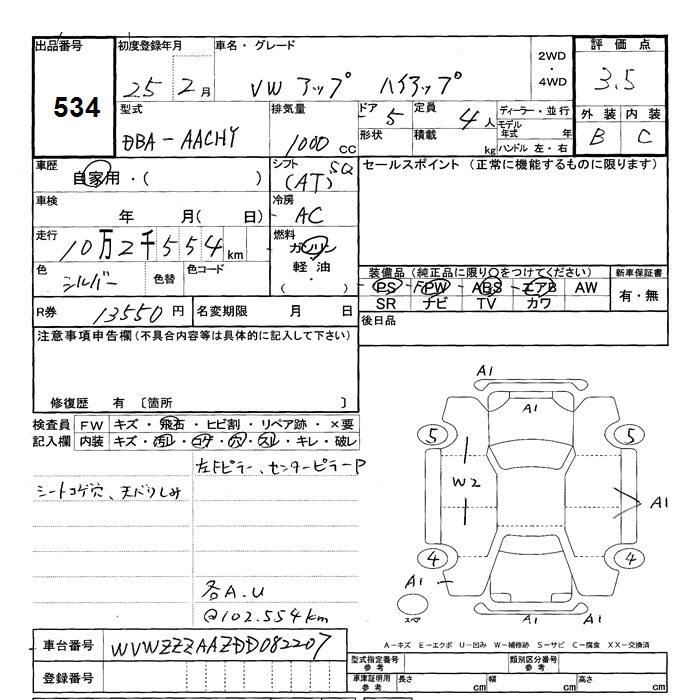 出品番号 初度登録年月 車名・グレード 2WD・4WD 評価点
534 25 2月 VW アップ ハイアップ 3.5
型式 排気量 ドア 5 定員 4人 ディーラー・並行 外装 内装
DBA-AACHY 1000cc 形状 積載 kg モデル年式 年 B C
ハンドル 左・右
車歴 シフト セールスポイント (正常に機能するものに限ります)
自家用・( ) (AT) SQ
車検 冷房
年 月( 日) AC
走行 燃料
10万2千554km ガソリン
色 色替 色コード 軽油
シルバー ・( )
装備品 (純正品に限り○をつけてください) 新車保証書
PS PW ABS エアB AW 有・無
SR ナビ TV カワ
R券 13550円 名変期限 月 日
後日品
注意事項申告欄 (不具合内容等は具体的に記入して下さい)
修復歴 有 〔箇所 〕
検査員 FW キズ・飛石・ヒビ割・リペア跡・×要
記入欄 内装 キズ・汚レ・コゲ・穴・スレ・キレ・破レ
左Fピラー、センターピラーP
シートコゲ穴、天バリしみ
各A.U
@102.554km
A1
A1
5 5
W2
A1
4 4
A1
スペア
A1 A1
車台番号 WVWZZZAAZDD082207
登録番号
A-キズ E-エクボ U-凹み W-補修跡 S-サビ C-腐食 XX-交換済
型式指定番号 参考 類別区分番号 参考
車庫証明用 参考 長さ cm 幅 cm 高さ cm